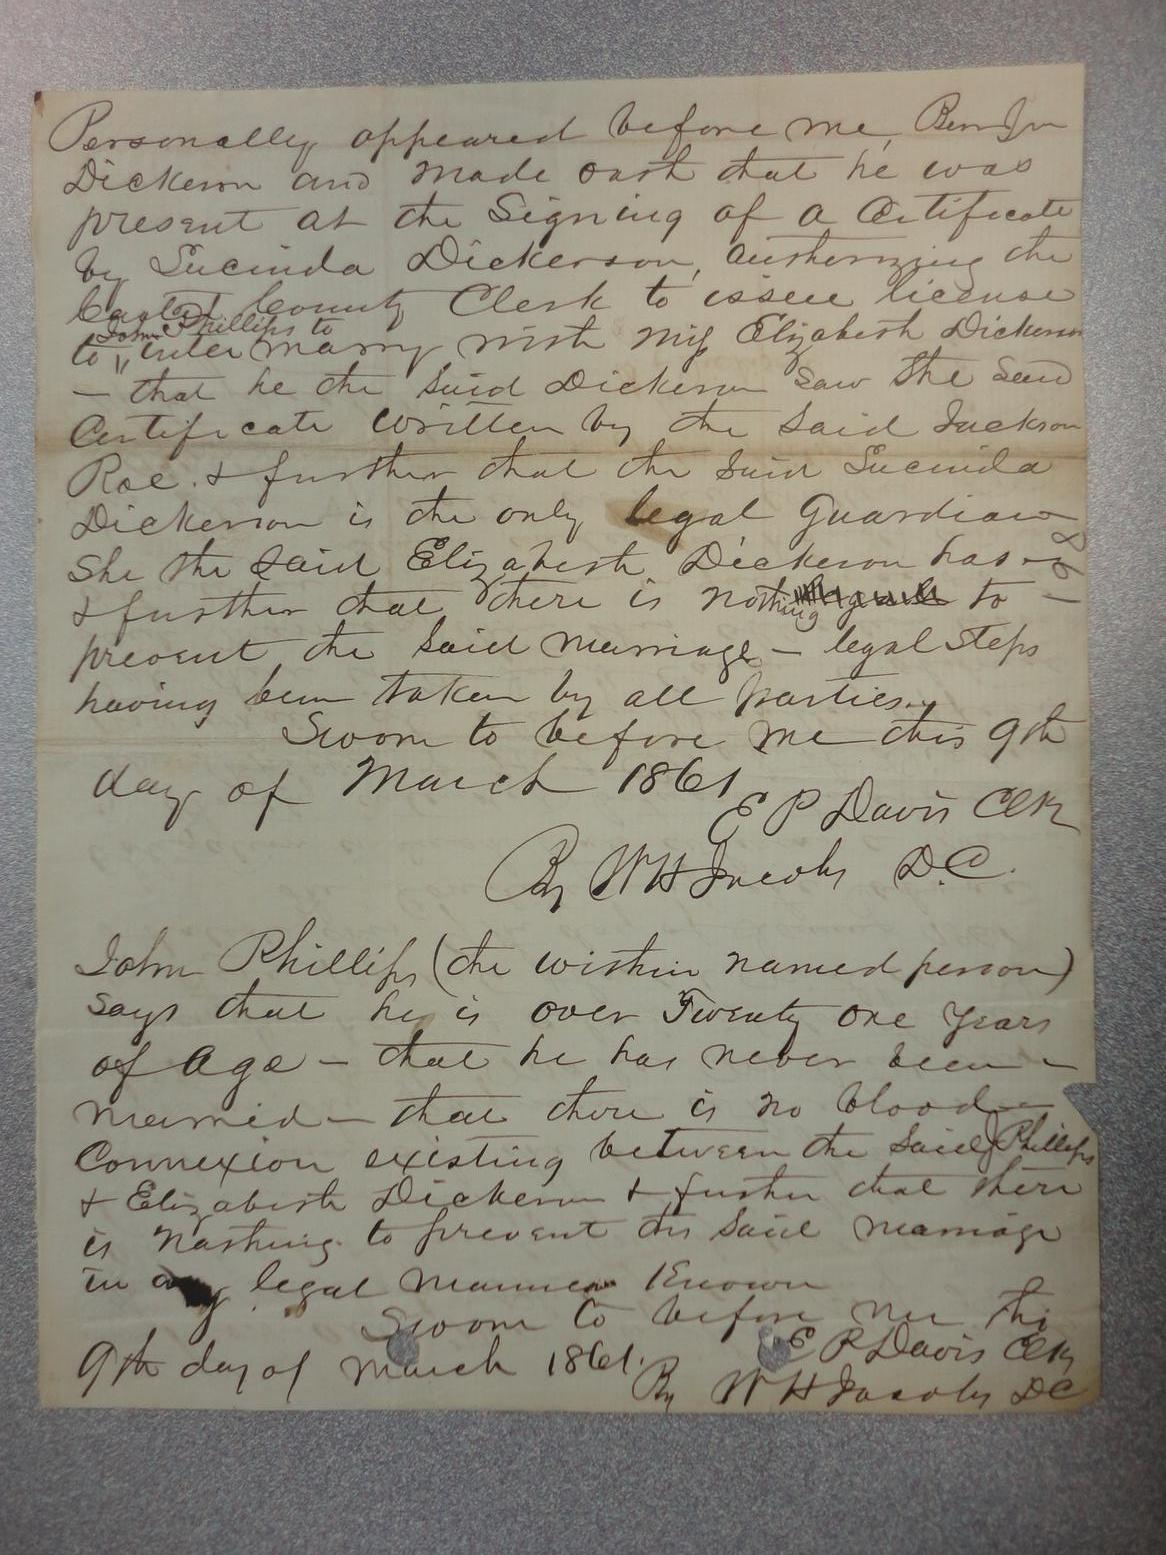 Personally appeared before me, Ben Jn
Dickerson and made oath that he was
present at the Signing of a Certificate
by Lucinda Dickerson, authorizing the
Carter County Clerk to issue license
John Phillips to
to " intermarry with Miss Elizabeth Dickerson
— that he the said Dickerson saw the said
Certificate written by the said Jackson
Roe. & further that the said Lucinda
Dickerson is the only legal Guardian
She the said Elizabeth Dickerson has —
& further that there is nothing to
prevent the said marriage — legal steps
having been taken by all parties.
Sworn to before me this 9th
day of March 1861
E P Davis Clk
By W H Jacobs D.C.
John Phillips (the within named person)
says that he is over Twenty one years
of Age — that he has never been —
married — that there is no blood —
Connexion existing between the said J Phillips
& Elizabeth Dickerson & further that there
is nothing to prevent the said marriage
in any legal manner Known
Sworn to before me this
9th day of March 1861.
E P Davis Clk
By W H Jacobs DC